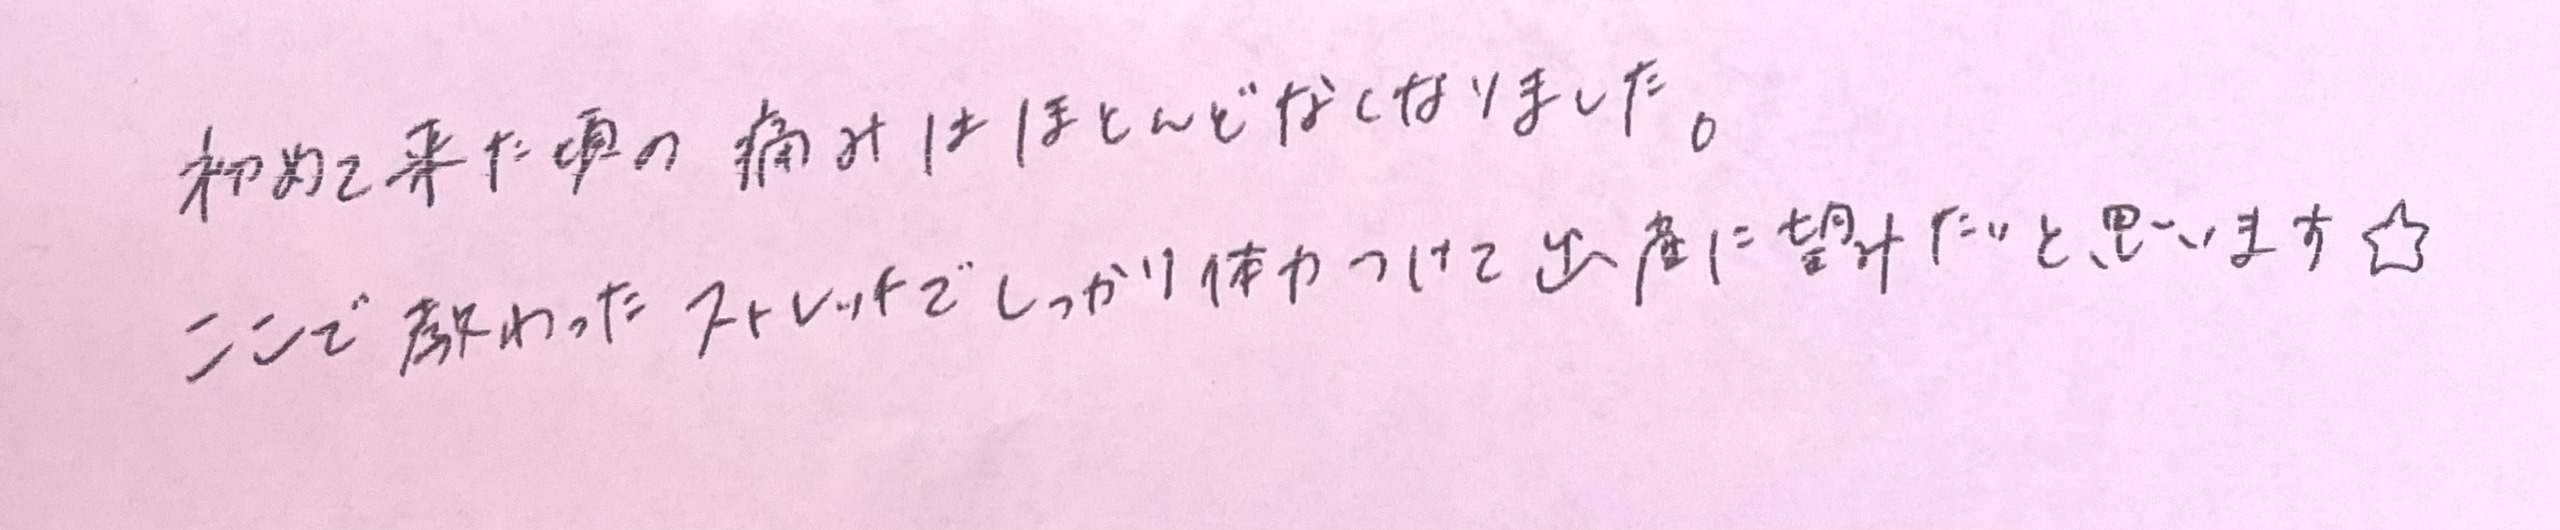 初めて来た頃の痛みはほとんどなくなりました。
ここで教わったストレッチでしっかり体力つけて出産に望みたいと思います☆